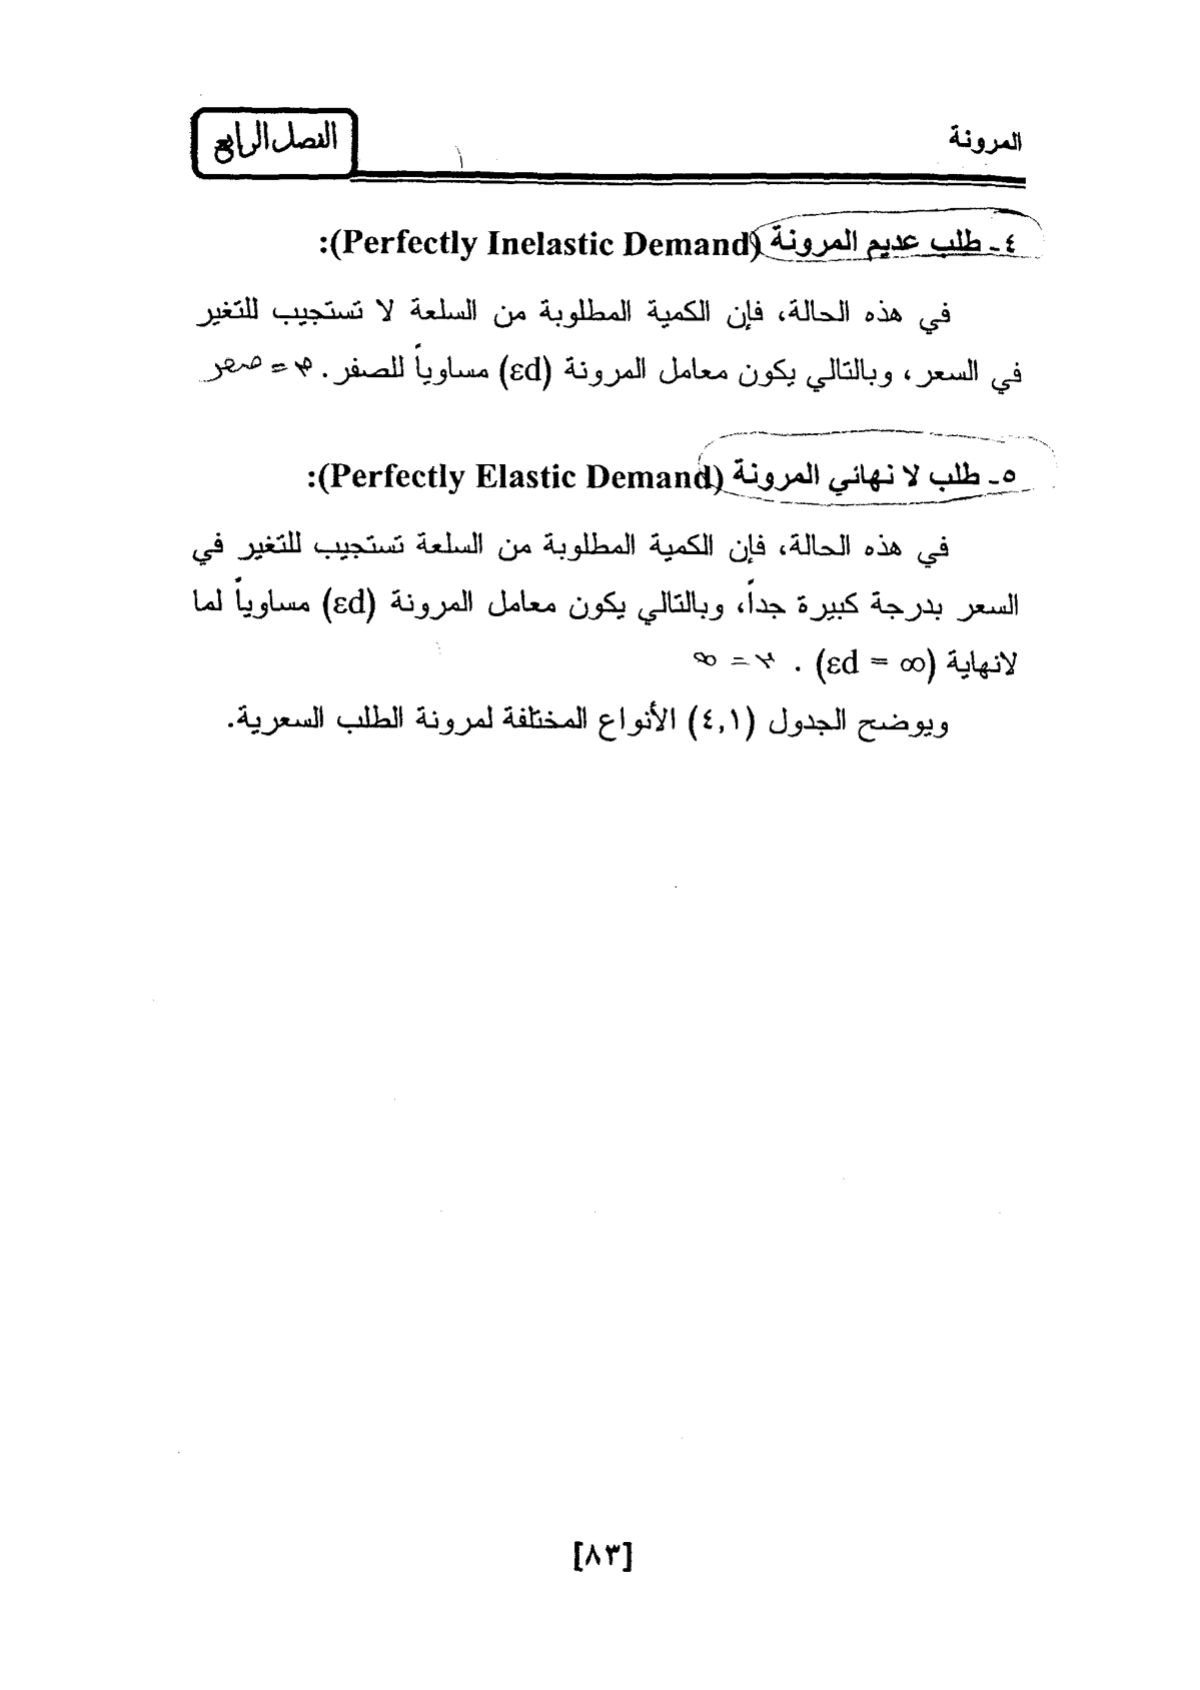 المرونة
الفصل الرابع
٤ـ طلب عديم المرونة (Perfectly Inelastic Demand):
في هذه الحالة، فإن الكمية المطلوبة من السلعة لا تستجيب للتغير
في السعر، وبالتالي يكون معامل المرونة (εd) مساوياً للصفر. = صفر
٥ـ طلب لا نهائي المرونة (Perfectly Elastic Demand):
في هذه الحالة، فإن الكمية المطلوبة من السلعة تستجيب للتغير في
السعر بدرجة كبيرة جداً، وبالتالي يكون معامل المرونة (εd) مساوياً لما
لانهاية (εd = ∞) . = ∞
ويوضح الجدول (٤,١) الأنواع المختلفة لمرونة الطلب السعرية.
[٨٣]